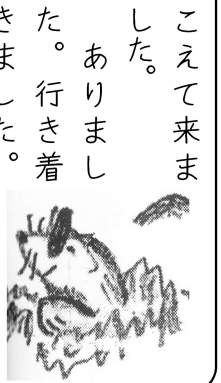 こえて来ま
した。
ありまし
た。行き着
きました。